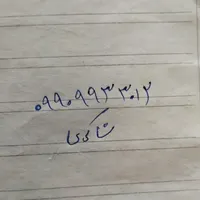 ۰۹۹۰۹۹۳۳۰۱۲
شاکری